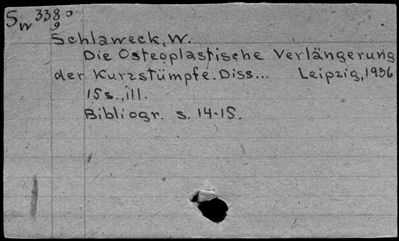 Sw 338
9
Schlaweck, W.
Die Osteoplastische Verlängerung
der Kurzstümpfe. Diss... Leipzig, 1936
15s., ill.
Bibliogr. s. 14-15.